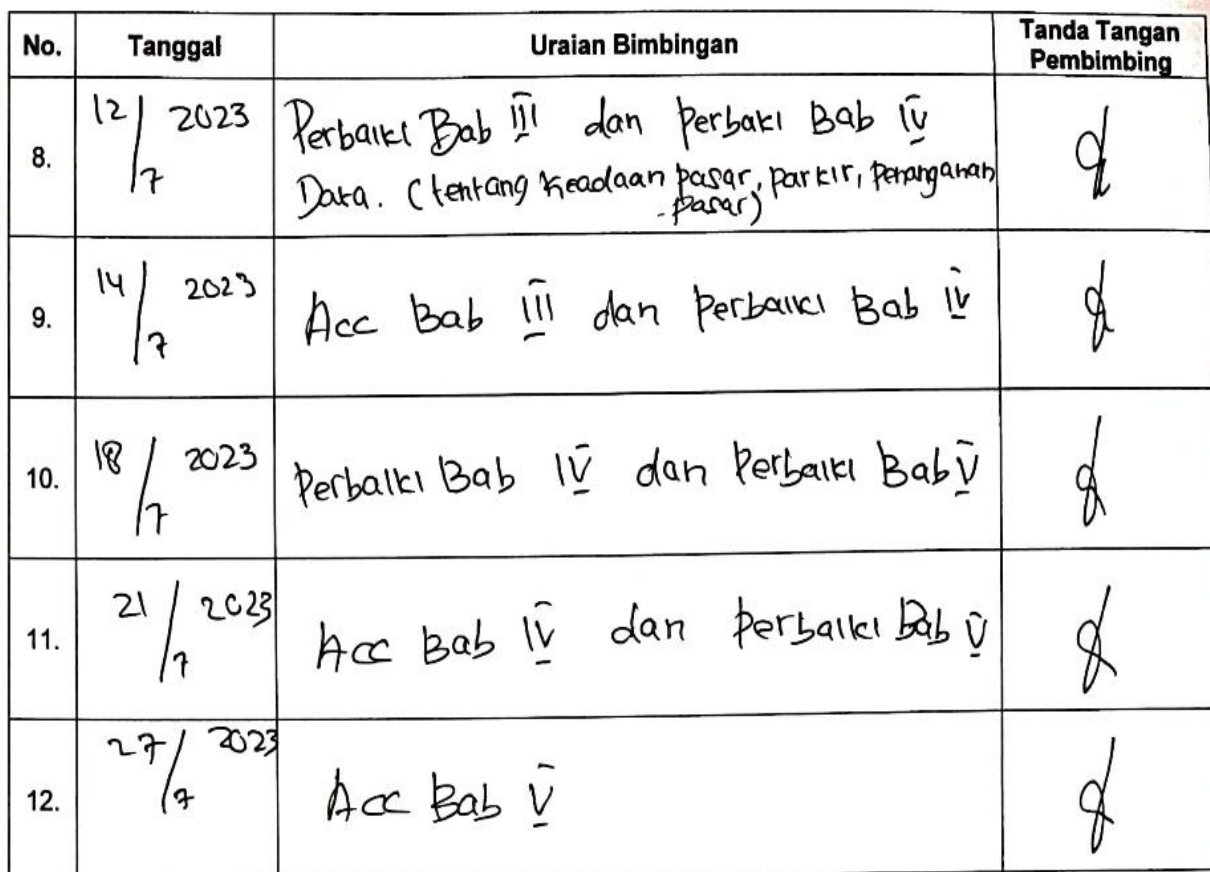 No. Tanggal Uraian Bimbingan Tanda Tangan
Pembimbing
8. 12/7 2023 Perbaiki Bab III dan Perbaki Bab IV
Data. (tentang Keadaan pasar, parkir, penanganan
- pasar)
9. 14/7 2023 Acc Bab III dan Perbaiki Bab IV
10. 18/7 2023 Perbaiki Bab IV dan Perbaiki Bab V
11. 21/7 2023 Acc Bab IV dan Perbaiki Bab V
12. 27/7 2023 Acc Bab V